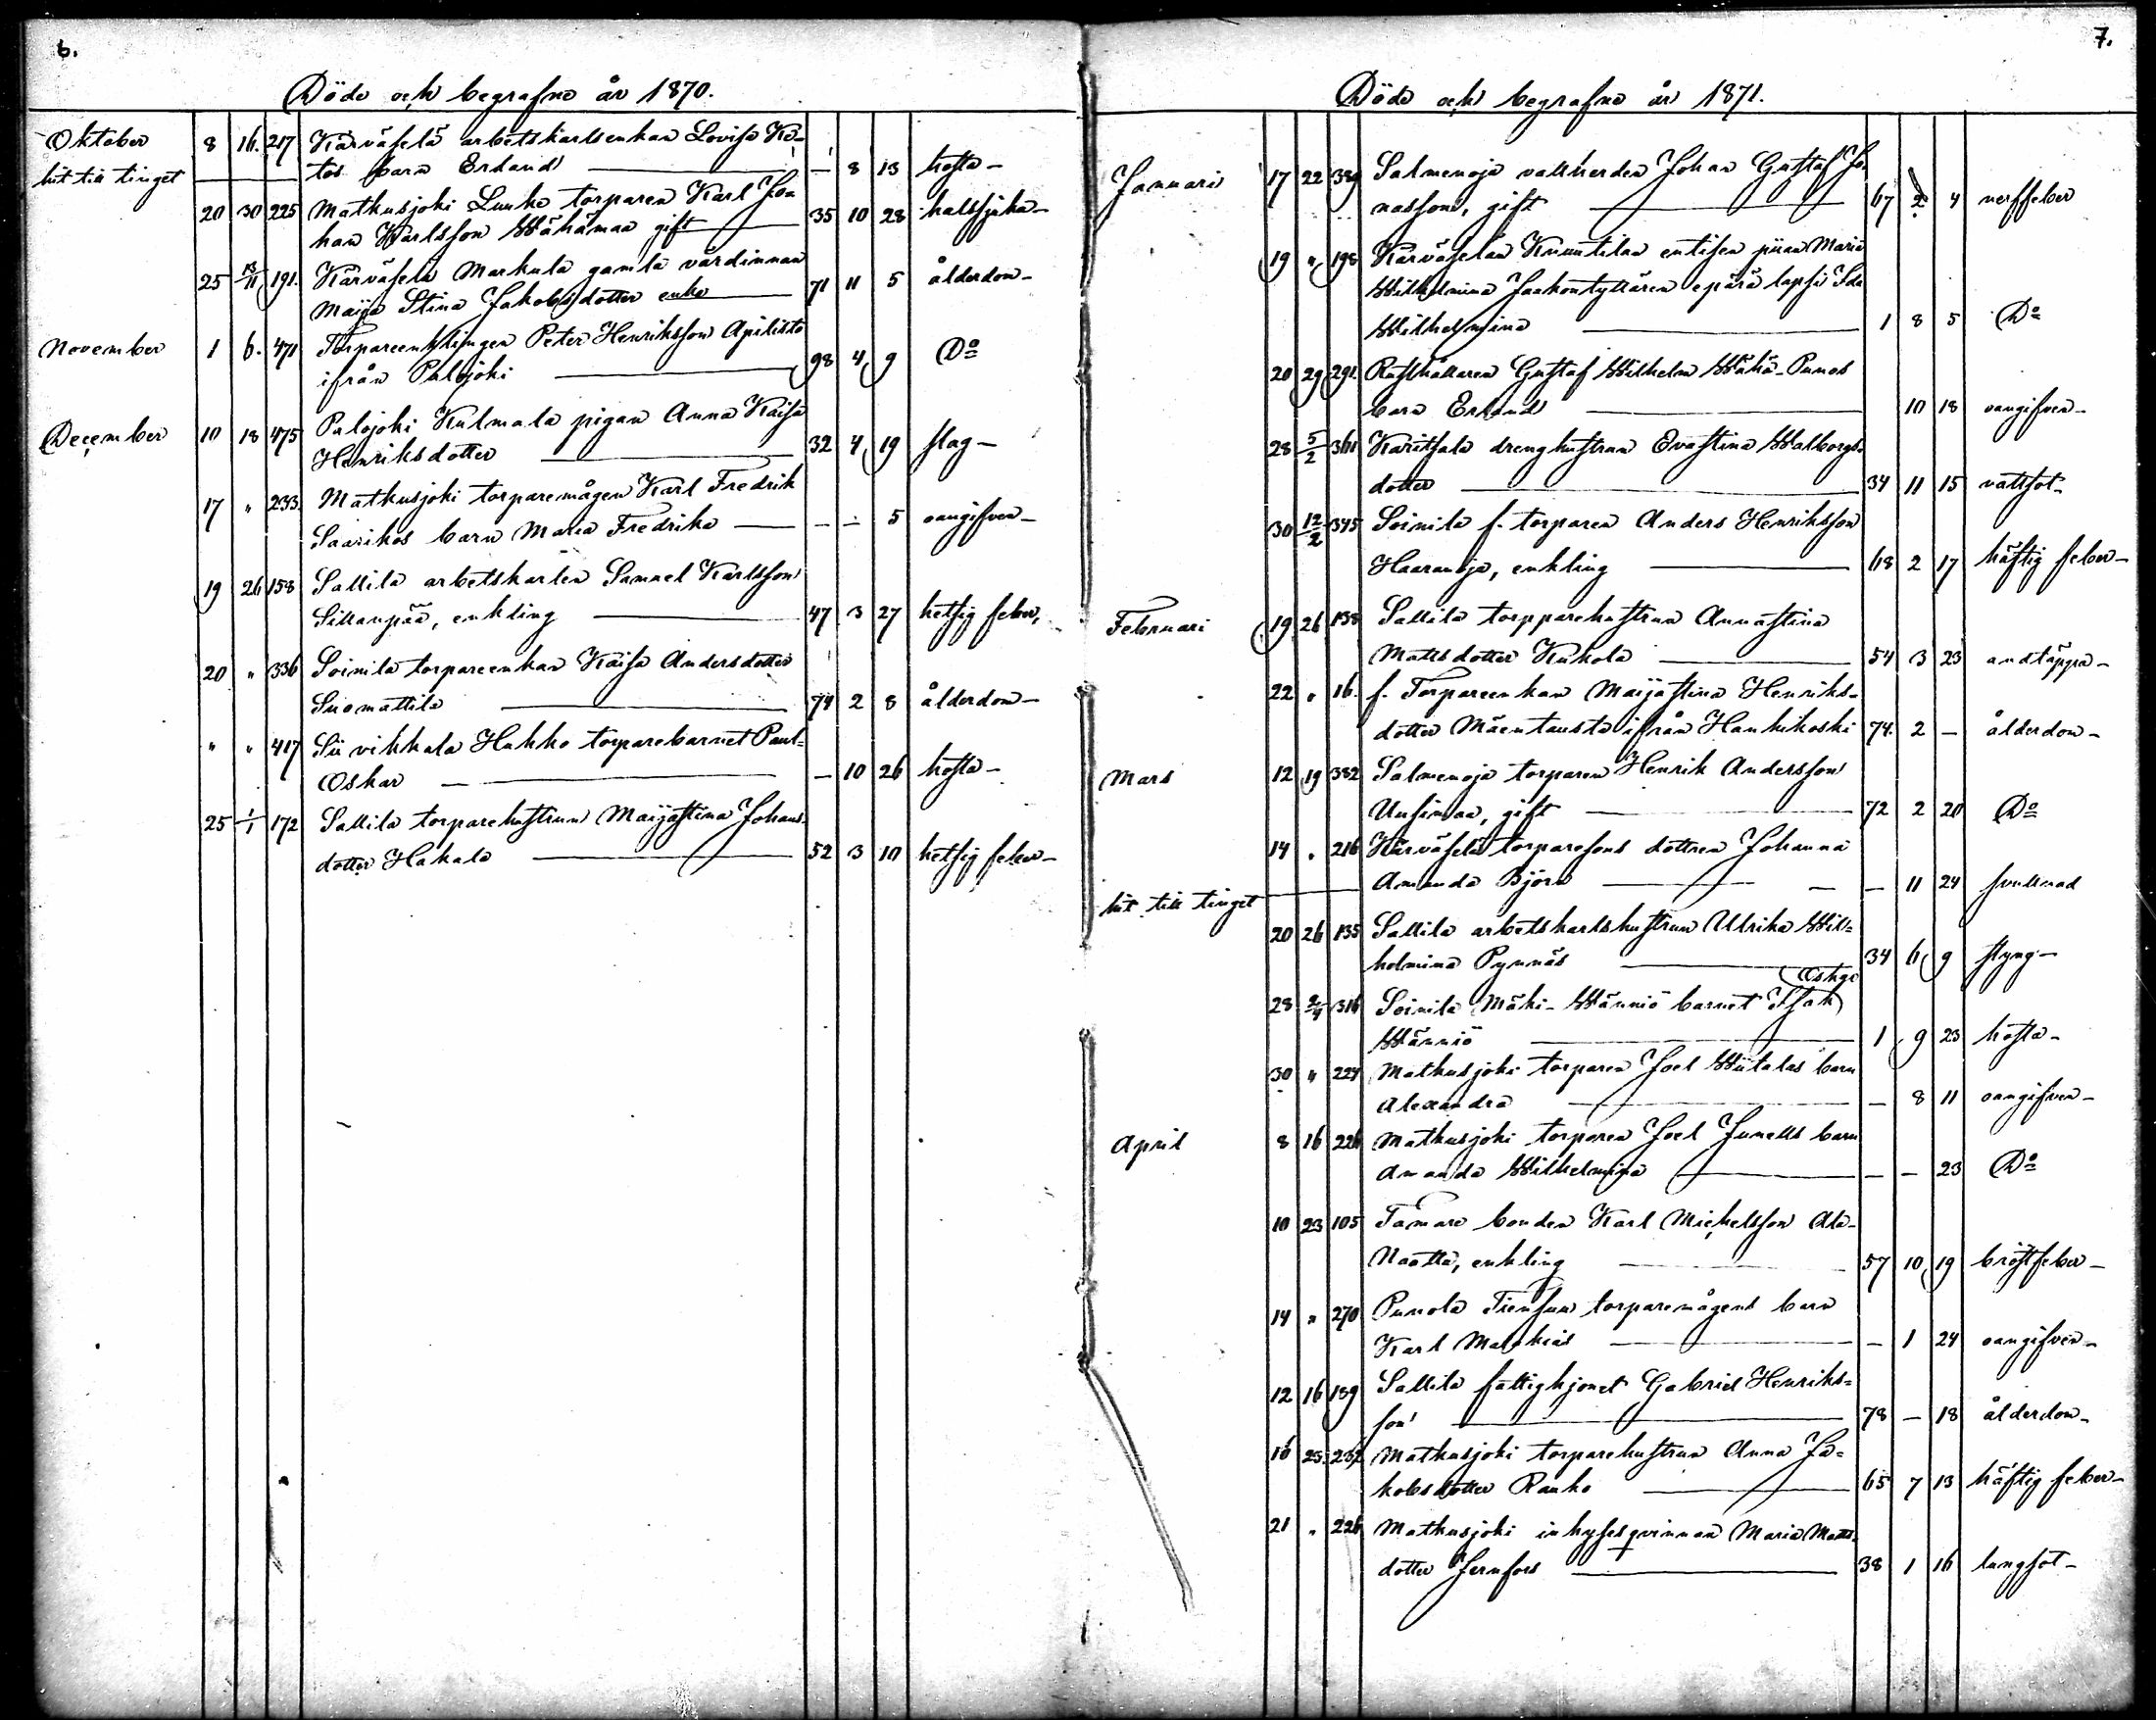 6.
Döde och begrafne år 1870.
Oktober 8 16. 217 Kärväselä arbetskarlsenkan Lovisa Ka-
hit till tinget tos barn Erland — 8 13 hosta-
20 30 225 Matkusjoki Luuko torparen Karl Jo-
han Karlsson Wähämaa gift 35 10 28 halssjuka-
25 13/11 191. Kärväselä Markula gamla värdinnan
Maija Stina Jakobsdotter enka 71 11 5 ålderdom-
November 1 6. 471 Torpareenklingen Peter Henriksson Apilisto
ifrån Palojoki 98 4 9 Do
December 10 18 475 Palojoki Kulmala pigan Anna Kaisa
Henriksdotter 32 4 19 slag-
17 " 233. Matkusjoki torparemågen Karl Fredrik
Saarikos barn Maria Fredrika — — 5 oangifven-
19 26 158 Sallila arbetskarlen Samuel Karlsson
Sillanpää, enkling 47 3 27 hetsig feber,
20 " 336 Soinila torpareenkan Kaisa Andersdotter
Suomattila 74 2 8 ålderdom-
" " 417 Siivikkala Hukko torparebarnet Paul-
Oskar — 10 26 hosta-
25 1/1 172 Sallila torparehustrun Maijastina Johans-
dotter Hakala 52 3 10 hetsig feber-
7.
Döde och begrafne år 1871.
Januari 17 22 389 Salmenoja vallherden Johan Gustaf Jo-
nasson, gift 67 2 4 nerffeber
19 " 198 Kärväselän Knuutilan entisen piian Maria
Wilhelmina Jaakontyttären epärä lapsi Ida
Wilhelmina 1 8 5 Do
20 29 291. Rusthållaren Gustaf Wilhelm Wähä-Punos
barn Erland 10 18 oangifven-
28 5/2 361 Karitsala drenghustrun Evastina Walborgs-
dotter 34 11 15 vattsot-
30 12/2 345 Soinila f. torparen Anders Henriksson
Haaranoja, enkling 68 2 17 häftig feber-
Februari 19 26 138 Sallila torpparehustrun Annastina
Mattsdotter Kukola 54 3 23 andtäppa-
22 " 16. f. Torpareenkan Maijastina Henriks-
dotter Mäentausta ifrån Hankikoski 74. 2 — ålderdom-
Mars 12 19 382 Salmenoja torparen Henrik Andersson
Uusimaa, gift 72 2 20 Do
14 " 216 Kärväselä torparesons dottren Johanna
Amanda Björn — 11 24 svullnad
hit till tinget
20 26 135 Sallila arbetskarlshustrun Ulrika Wil-
helmina Pynnäs 34 6 9 styng-
Oskar
28 2/4 316 Soinila Mäki-Wänniö barnet Isak
Wänniö 1 9 23 hosta-
30 " 224 Matkusjoki torparen Joel Wiitalas barn
Alexandra — 8 11 oangifven-
April 8 16 226 Matkusjoki torparen Joel Junells barn
Amanda Wilhelmina — — 23 Do
10 23 105 Tamare bonden Karl Michelsson Ala-
Naatta, enkling 57 10 19 bröstfeber-
14 " 270 Punola Tiensuu torparemågens barn
Karl Mathias — 1 24 oangifven-
12 16 189 Sallila fattighjonet Gabriel Henriks-
son 78 — 18 ålderdom-
16 23. 237 Matkusjoki torparehustrun Anna Ja-
kobsdotter Rauko 65 7 13 häftig feber-
21 " 226 Matkusjoki inhysesqvinnan Maria Matts-
dotter Jernfors 38 1 16 lungsot-